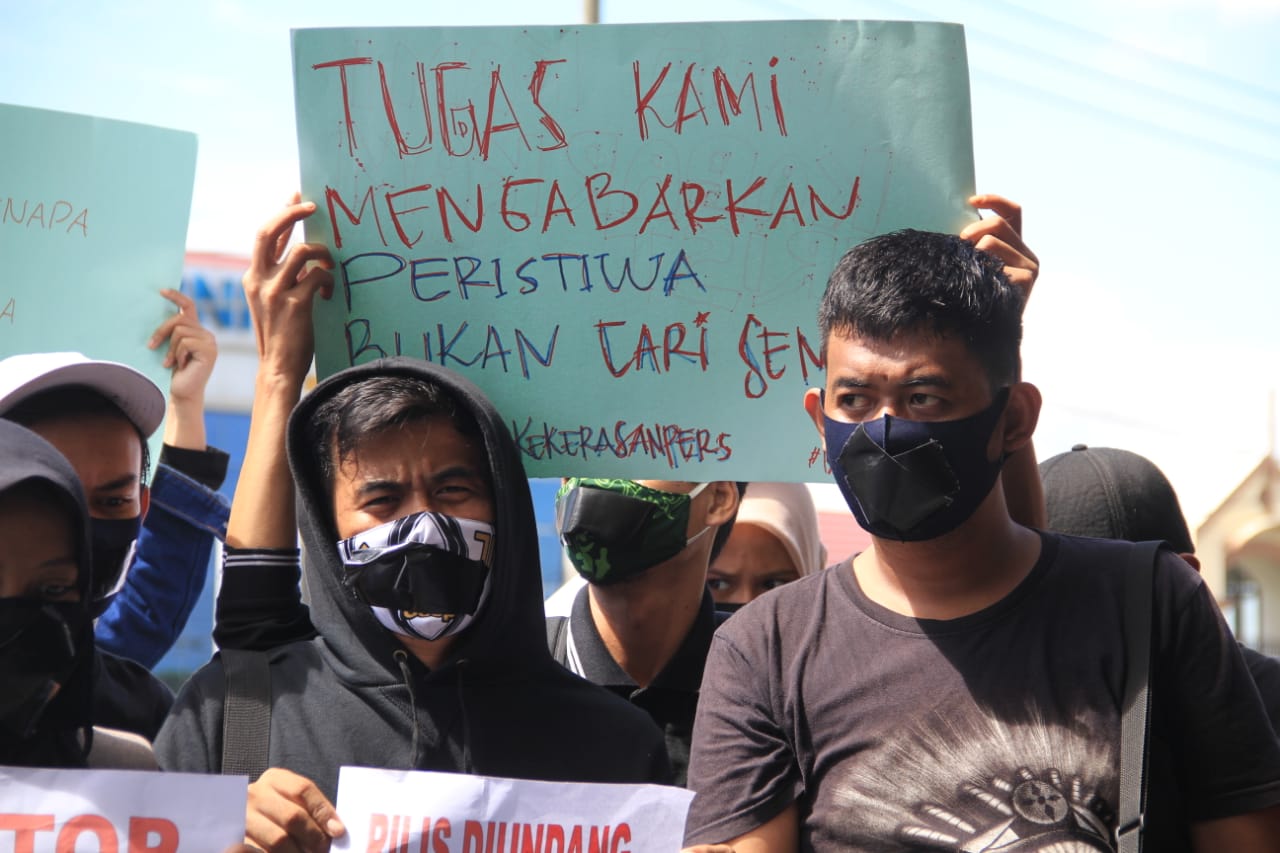 TUGAS KAMi
MENGABARKAN
PERISTIWA
BUKAN TARi SEN
KEKERASANPERS
ENAPA
A
TOR
RILIS DIUNDANG